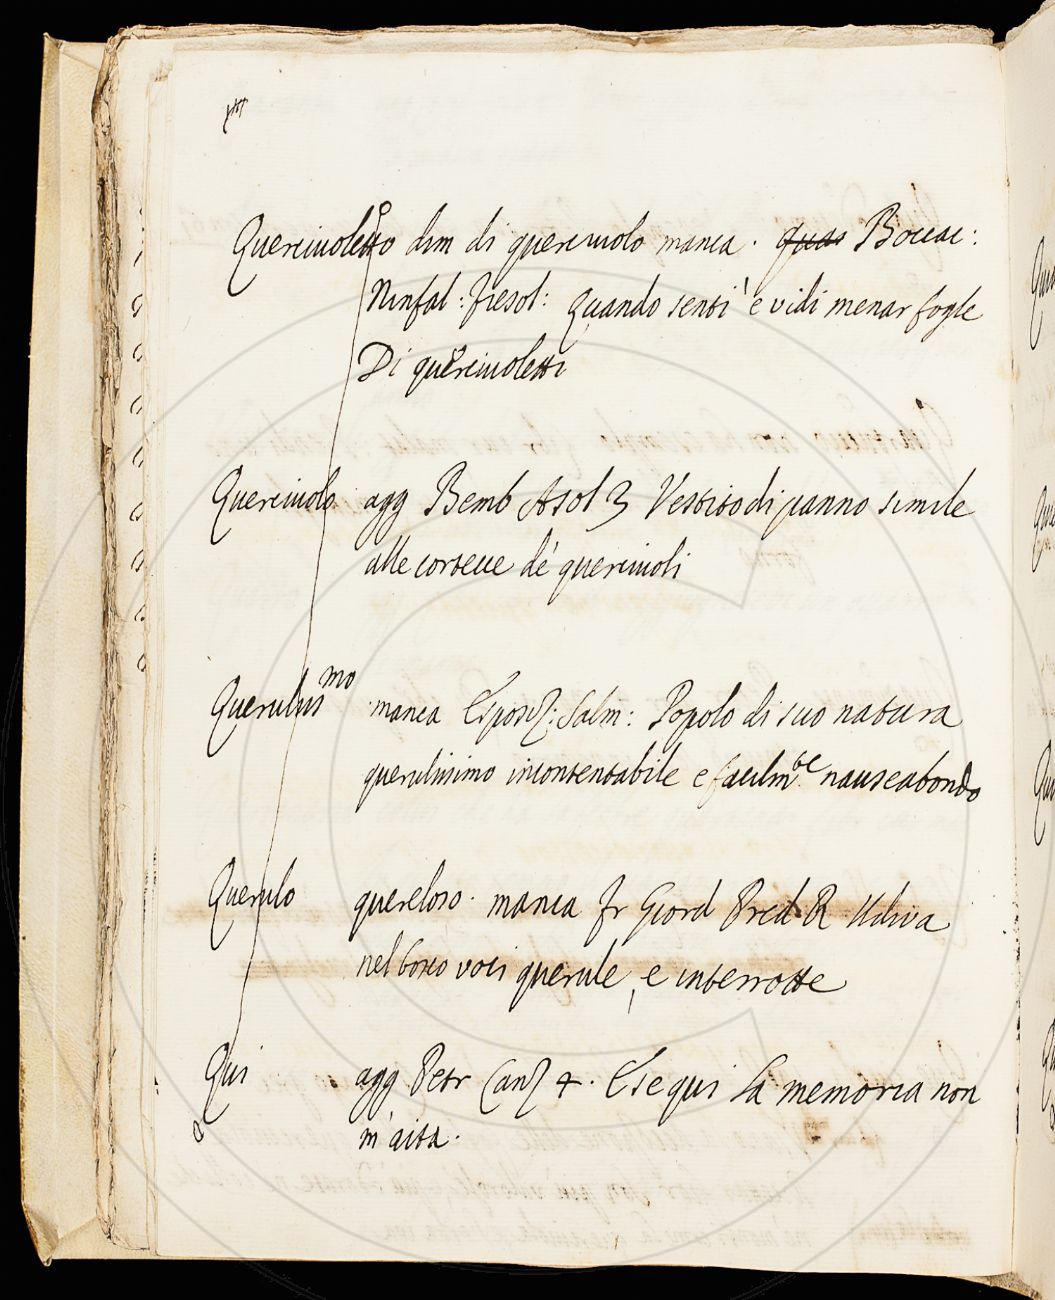 Querciuoletto dim di querciuolo manca. quas Boccac:
Ninfal: fiesol: Quando senti' e vidi menar foglie
Di querciuoletti
Querciuolo agg Bemb Asol 3 Vestito di panno simile
alle cortecce de' querciuoli
Querulissmo manca Esposiz: Salm: Popolo di suo natura
querulissimo incontentabile e facilmte nauseabondo
Querulo quereloso. manca Fr Giord Pred R Udiva
nel bosco voci querule, e interrotte
Qui agg Petr Canz 4. E se qui la memoria non
m'aita.